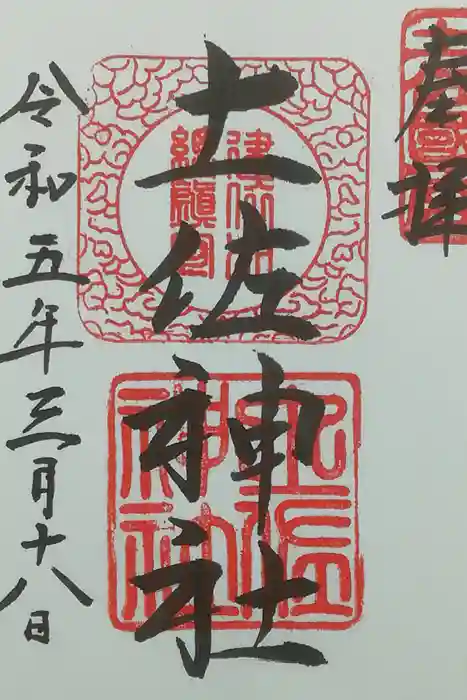 奉拝
土佐神社
令和五年三月十八日
建依別
総鎮守
土佐
神社